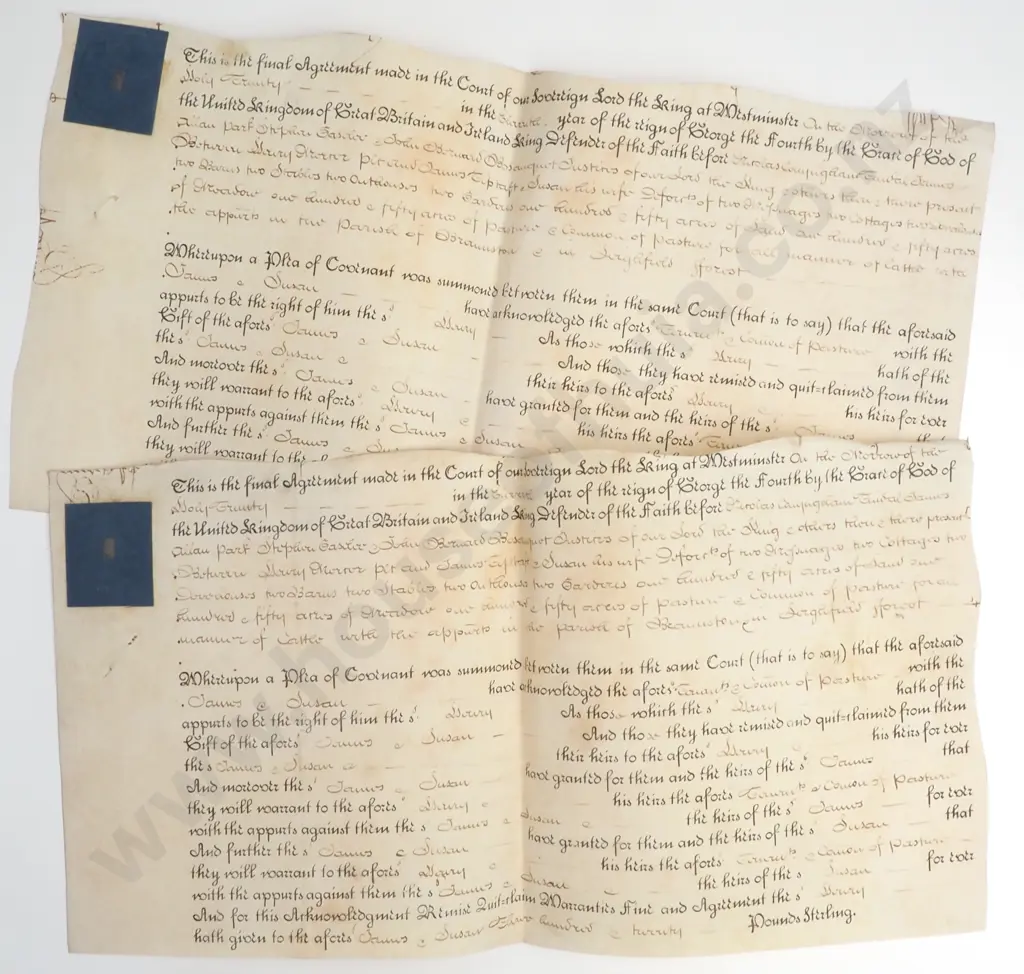 This is the final Agreement made in the Court of our Sovereign Lord the King at Westminster On the Morrow of the
Holy Trinity in the year of the reign of George the Fourth by the Grace of God of
the United Kingdom of Great Britain and Ireland King Defender of the Faith before Nicolas Conyngham Tindal James
Allan Park Stephen Gaselee John Bernard Bosanquet Justices of our Lord the King & others then & there present
Between Henry Mercer Plt and James & Susan his wife Deforcts of two Messuages two Cottages two
two Barns two Stables two Outhouses two Gardens one hundred & fifty acres of Land one hundred & fifty acres
of Meadow one hundred & fifty acres of Pasture & Common of Pasture for all manner of Cattle with
the appurts in the Parish of & in fforest
Whereupon a Plea of Covenant was summoned between them in the same Court (that is to say) that the aforesaid
James & Susan have acknowledged the afores^d Tenem^ts & Common of Pasture with the
appurts to be the right of him the s^d Henry As those which the s^d Henry hath of the
Gift of the afores^d James & Susan And those they have remised and quit=claimed from them
the s^d James & Susan & their heirs to the afores^d Henry & his heirs for ever
And moreover the s^d James & Susan have granted for them and the heirs of the s^d James that
they will warrant to the afores^d Henry & his heirs the afores^d
with the appurts against them the s^d James & Susan
And further the s^d James & Susan
they will warrant to the
This is the final Agreement made in the Court of our Sovereign Lord the King at Westminster On the Morrow of the
Holy Trinity in the year of the reign of George the Fourth by the Grace of God of
the United Kingdom of Great Britain and Ireland King Defender of the Faith before Nicolas Conyngham Tindal James
Allan Park Stephen Gaselee John Bernard Bosanquet Justices of our Lord the King & others then & there present
Between Henry Mercer Plt and James & Susan his wife Deforcts of two Messuages two Cottages two
two Barns two Stables two Outhouses two Gardens one hundred & fifty acres of Land one
hundred & fifty acres of Meadow one hundred & fifty acres of Pasture & Common of Pasture for all
manner of Cattle with the appurts in the parish of & in fforest
Whereupon a Plea of Covenant was summoned between them in the same Court (that is to say) that the aforesaid
James & Susan have acknowledged the afores^d Tenem^ts & Common of Pasture with the
appurts to be the right of him the s^d Henry As those which the s^d Henry hath of the
Gift of the afores^d James & Susan And those they have remised and quit=claimed from them
the s^d James & Susan & their heirs to the afores^d Henry & his heirs for ever
And moreover the s^d James & Susan have granted for them and the heirs of the s^d James that
they will warrant to the afores^d Henry & his heirs the afores^d Tenem^ts & Common of Pasture
with the appurts against them the s^d James & Susan & the heirs of the s^d James for ever
And further the s^d James & Susan have granted for them and the heirs of the s^d Susan that
they will warrant to the afores^d Henry & his heirs the afores^d Tenem^ts & Common of Pasture
with the appurts against them the s^d James & Susan & the heirs of the s^d Susan for ever
And for this Acknowledgment Remise Quit=claim Warranties Fine and Agreement the s^d Henry
hath given to the afores^d James & Susan Three hundred & twenty Pounds Sterling.